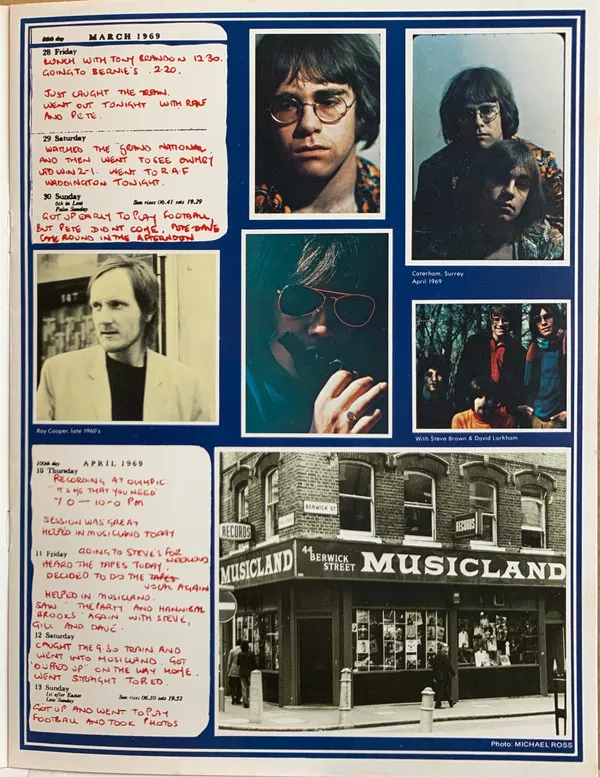 88th day MARCH 1969
28 Friday
LUNCH WITH TONY BRANDON 12.30.
GOING TO BERNIE'S . 2.20.
JUST CAUGHT THE TRAIN.
WENT OUT TONIGHT WITH RALF
AND PETE.
29 Saturday
WATCHED THE "GRAND NATIONAL
AND THEN WENT TO SEE OWMBY
UTD WIN 2-1. WENT TO R.A.F
WADDINGTON TONIGHT.
30 Sunday
6th in Lent
Palm Sunday
Sun rises 06.41 sets 19.29
GOT UP EARLY TO PLAY FOOTBALL
BUT PETE DIDNT COME. PETE-DAVE
CAME ROUND IN THE AFTERNOON
Caterham, Surrey
April 1969
147
Ray Cooper, late 1960's
With Steve Brown & David Larkham
100th day APRIL 1969
10 Thursday
RECORDING AT OLYMPIC
"IT'S ME THAT YOU NEED"
7.0 - 10-0 PM
SESSION WAS GREAT
HELPED IN MUSICLAND TODAY
11 Friday GOING TO STEVE'S FOR
WEEKEND
HEARD THE TAPES TODAY.
DECIDED TO DO THE TAPES
VOCAL AGAIN
HELPED IN MUSICLAND.
SAW "THE PARTY AND HANNIBAL
BROOKS" AGAIN WITH STEVE,
GILL AND DAVE.
12 Saturday
CAUGHT THE 9.30 TRAIN AND
WENT INTO MUSICLAND. GOT
"DUFFED UP" ON THE WAY HOME.
WENT STRAIGHT TO BED.
13 Sunday
1st after Easter
Low Sunday
Sun rises 06.10 sets 19.52
GOT UP AND WENT TO PLAY
FOOTBALL AND TOOK PHOTOS
BERWICK ST
RECORDS
RECORDS
MUSICLAND
44 BERWICK STREET
MUSICLAND
Photo: MICHAEL ROSS